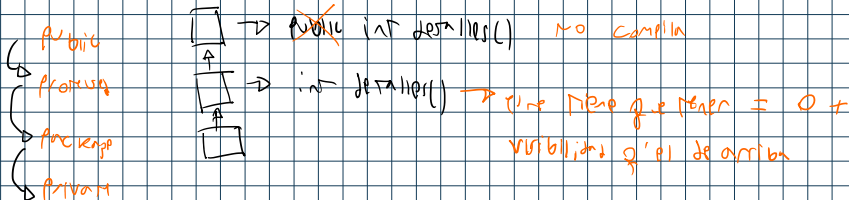 public
protected
package
private
public int detalles() NO compila
int detalles() este tiene que tener = o +
visibilidad q' el de arriba